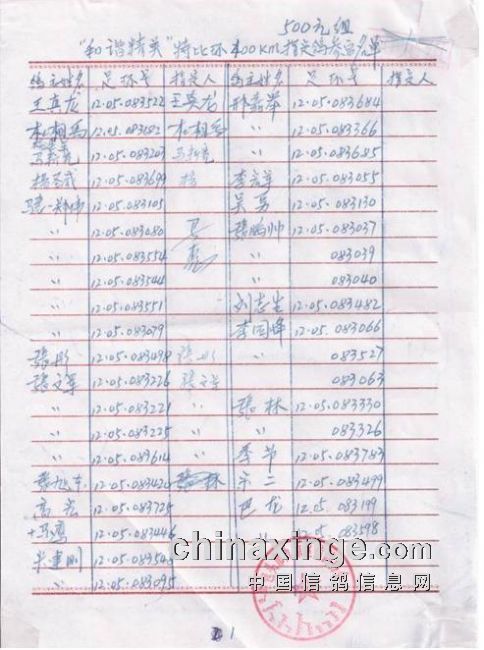 500元组
"和谐精英"特比环400km指定鸽参赛名单
鸽主姓名 足环号 指定人 鸽主姓名 足环号 指定人
12.05.083522 12.05.083684
12.05.083182 〃 12.05.083366
12.05.083203 〃 12.05.083685
12.05.083699 杨 12.05.083055
12.05.083105 12.05.083130
〃 12.05.083080 张鹏帅 12.05.083037
〃 12.05.083554 〃 083039
〃 12.05.083544 〃 083040
〃 12.05.083551 刘志生 12.05.083482
〃 12.05.083079 李国峰 12.05.083066
张彤 12.05.083498 张彤 〃 083527
张文军 12.05.083226 张文军 083063
〃 12.05.083221 〃 张林 12.05.083330
〃 12.05.083225 〃 〃 083326
〃 12.05.083614 〃 季节 12.05.083783
12.05.083420 宋二 12.05.083499
高岩 12.05.083725 巴龙 12.05.083199
12.05.083446 〃 12.05.083598
米建刚 12.05.083545
〃 12.05.083095
chinaxinge.com
中国信鸽信息网
1